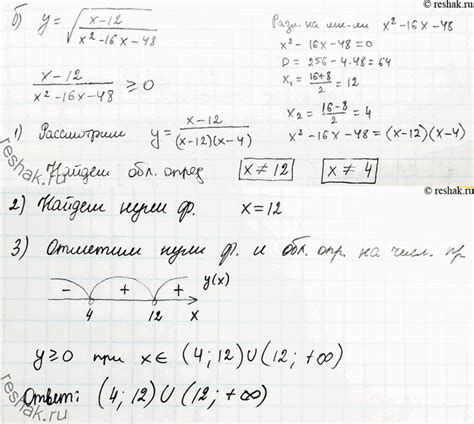 © reshak.ru
б) y = √((x-12)/(x²-16x-48))
Разл. на мн-ли x²-16x-48
x²-16x-48=0
D = 256-4·48=64
x₁ = (16+8)/2 = 12
x₂ = (16-8)/2 = 4
x²-16x-48=(x-12)(x-4)
(x-12)/(x²-16x-48) ≥ 0
1) Рассмотрим y = (x-12)/((x-12)(x-4))
Найдем обл. опред x≠12 x≠4
© reshak.ru
2) Найдем нули ф. x=12
3) Отметим нули ф. и обл. опр. на числ. пр
- + + y(x)
4 12 x
y≥0 при x∈ (4; 12)∪(12; +∞)
Ответ: (4; 12)∪(12; +∞)
reshak.ru
reshak.ru